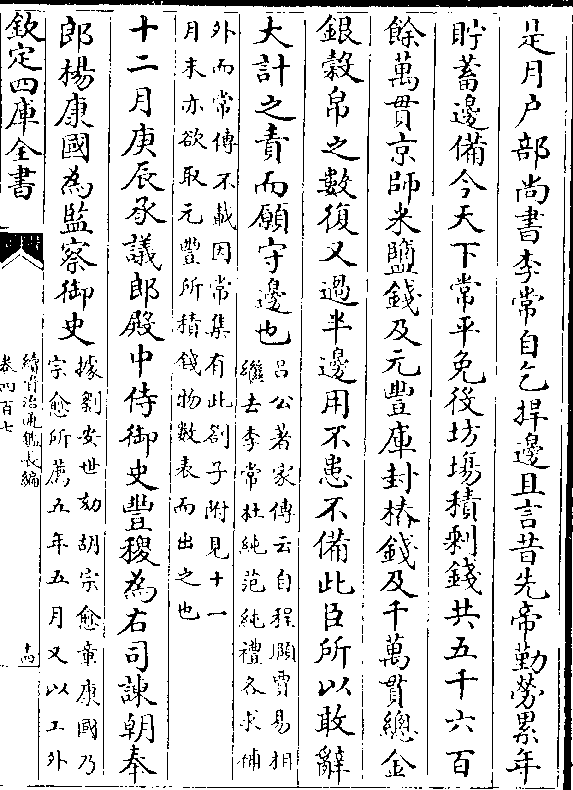 是月戶部尚書李常自乞捍邊且言昔先帝勤勞累年
貯蓄邊備今天下常平免役坊塲積剩錢共五千六百
餘萬貫京師米鹽錢及元豐庫封樁錢及千萬貫總金
銀榖帛之數復又過半邊用不患不備此臣所以敢辭
大計之責而願守邊也
吕公著家傳云自程頥賈易相
繼去李常杜純范純禮各求補
外而常傳不載因常集有此劄子附見十一
月末亦欲取元豐所積錢物數表而出之也
十二月庚辰承議郎殿中侍御史豐稷為右司諫朝奉
郎楊康國為監察御史
據劉安世劾胡宗愈章康國乃
宗愈所薦五年五月又以工外
欽定四庫全書
續資治通鑑長編
卷四百七
十四